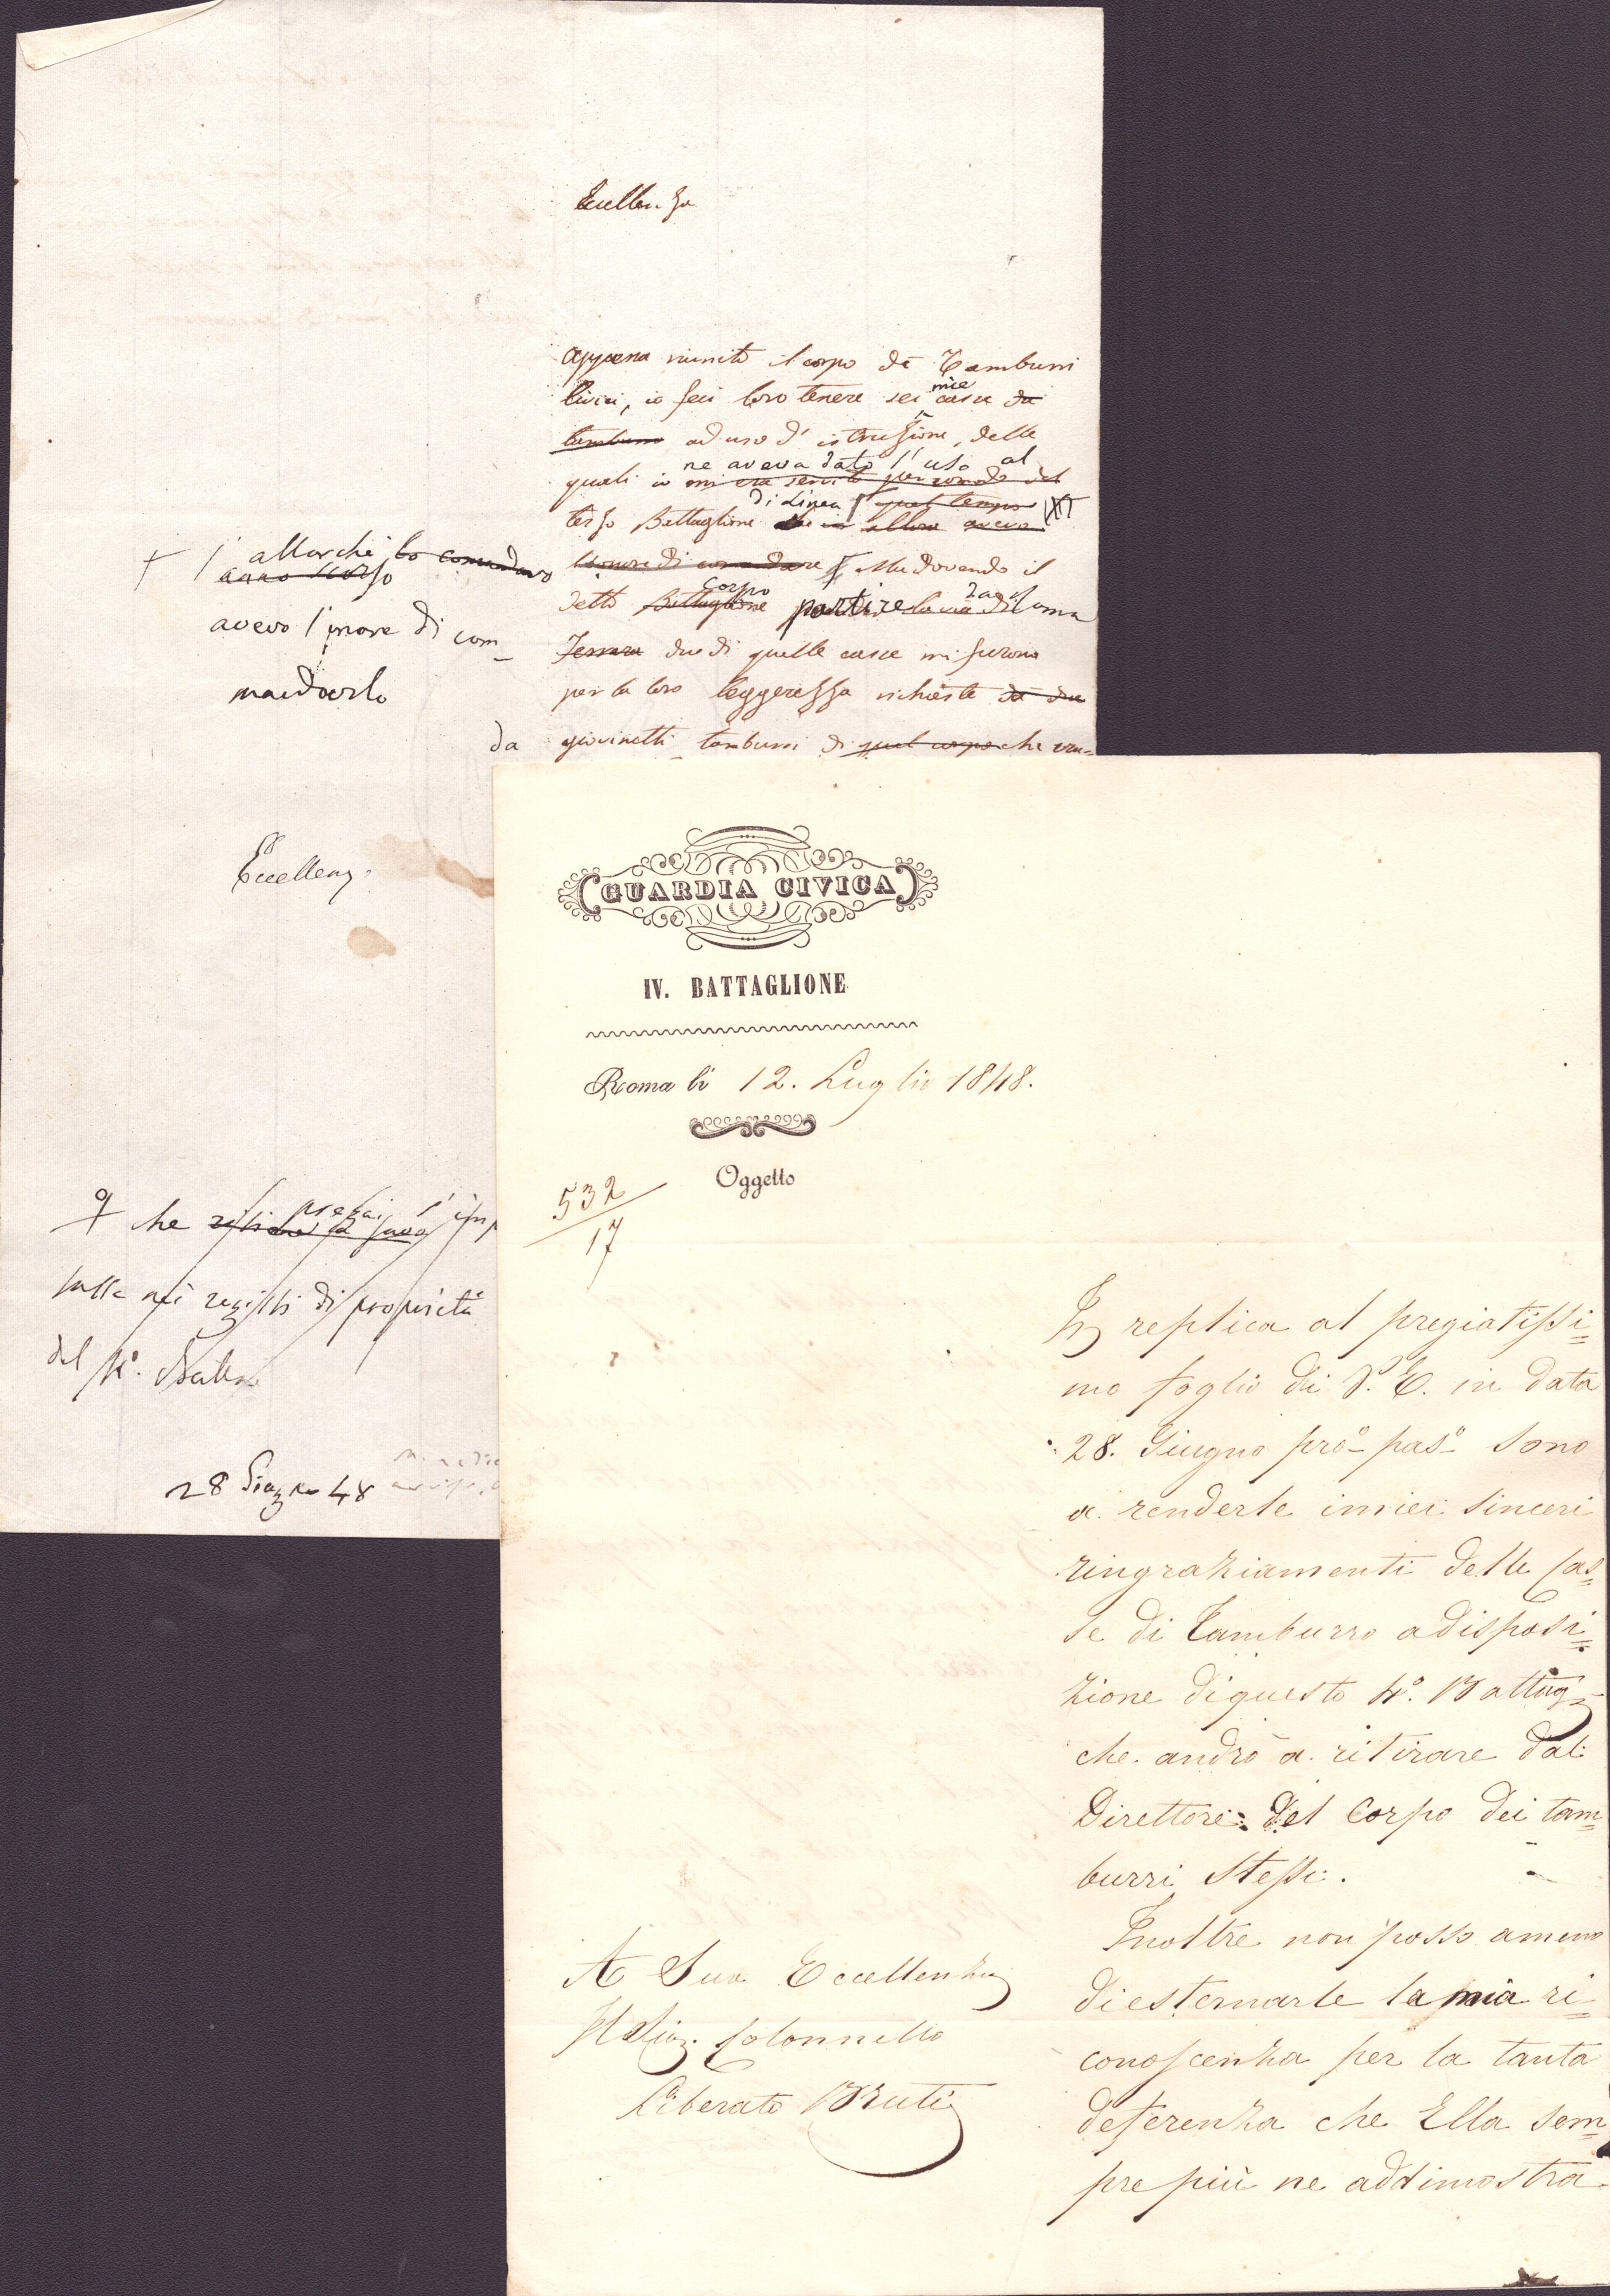 Eccellenza
Appena riunito il corpo de Tamburri
Civici, io feci loro tenere sei mie casse da
tamburro ad uso d'istruzione, delle
ne aveva dato l'uso al
quali io mi era servito per comodo del
di Linea quel tempo
terzo Battaglione allora aveva
l'onore di comandare Ma dovendo il
corpo
detto Battaglione partire da Roma
Ferrara due di quelle casse mi furono
per la loro leggerezza richieste da due
da giovinetti tamburri di quel corpo che
allorchè lo comandavo
anno scorso
avevo l'onore di com-
mandarlo
Eccellenza
che prestai
sulle nei registri di proprietà
del 4°. Batt
28 Giugno 48
GUARDIA CIVICA
IV. BATTAGLIONE
Roma li 12. Luglio 1848.
Oggetto
532
17
In replica al pregiatissi=
mo foglio di V. E. in data
28. Giugno pro° pas° sono
a renderle i miei sinceri
ringraziamenti delle Cas=
se di Tamburro a disposi=
zione di questo 4°. Battag
che andrò a ritirare dal
Direttore del Corpo dei tam=
burri stessi.
Inoltre non posso a meno
di esternarle la mia ri=
conoscenza per la tanta
deferenza che Ella sem=
pre più ne addimostra
A Sua Eccellenza
Il Sig. Colonnello
Liberato Bruti